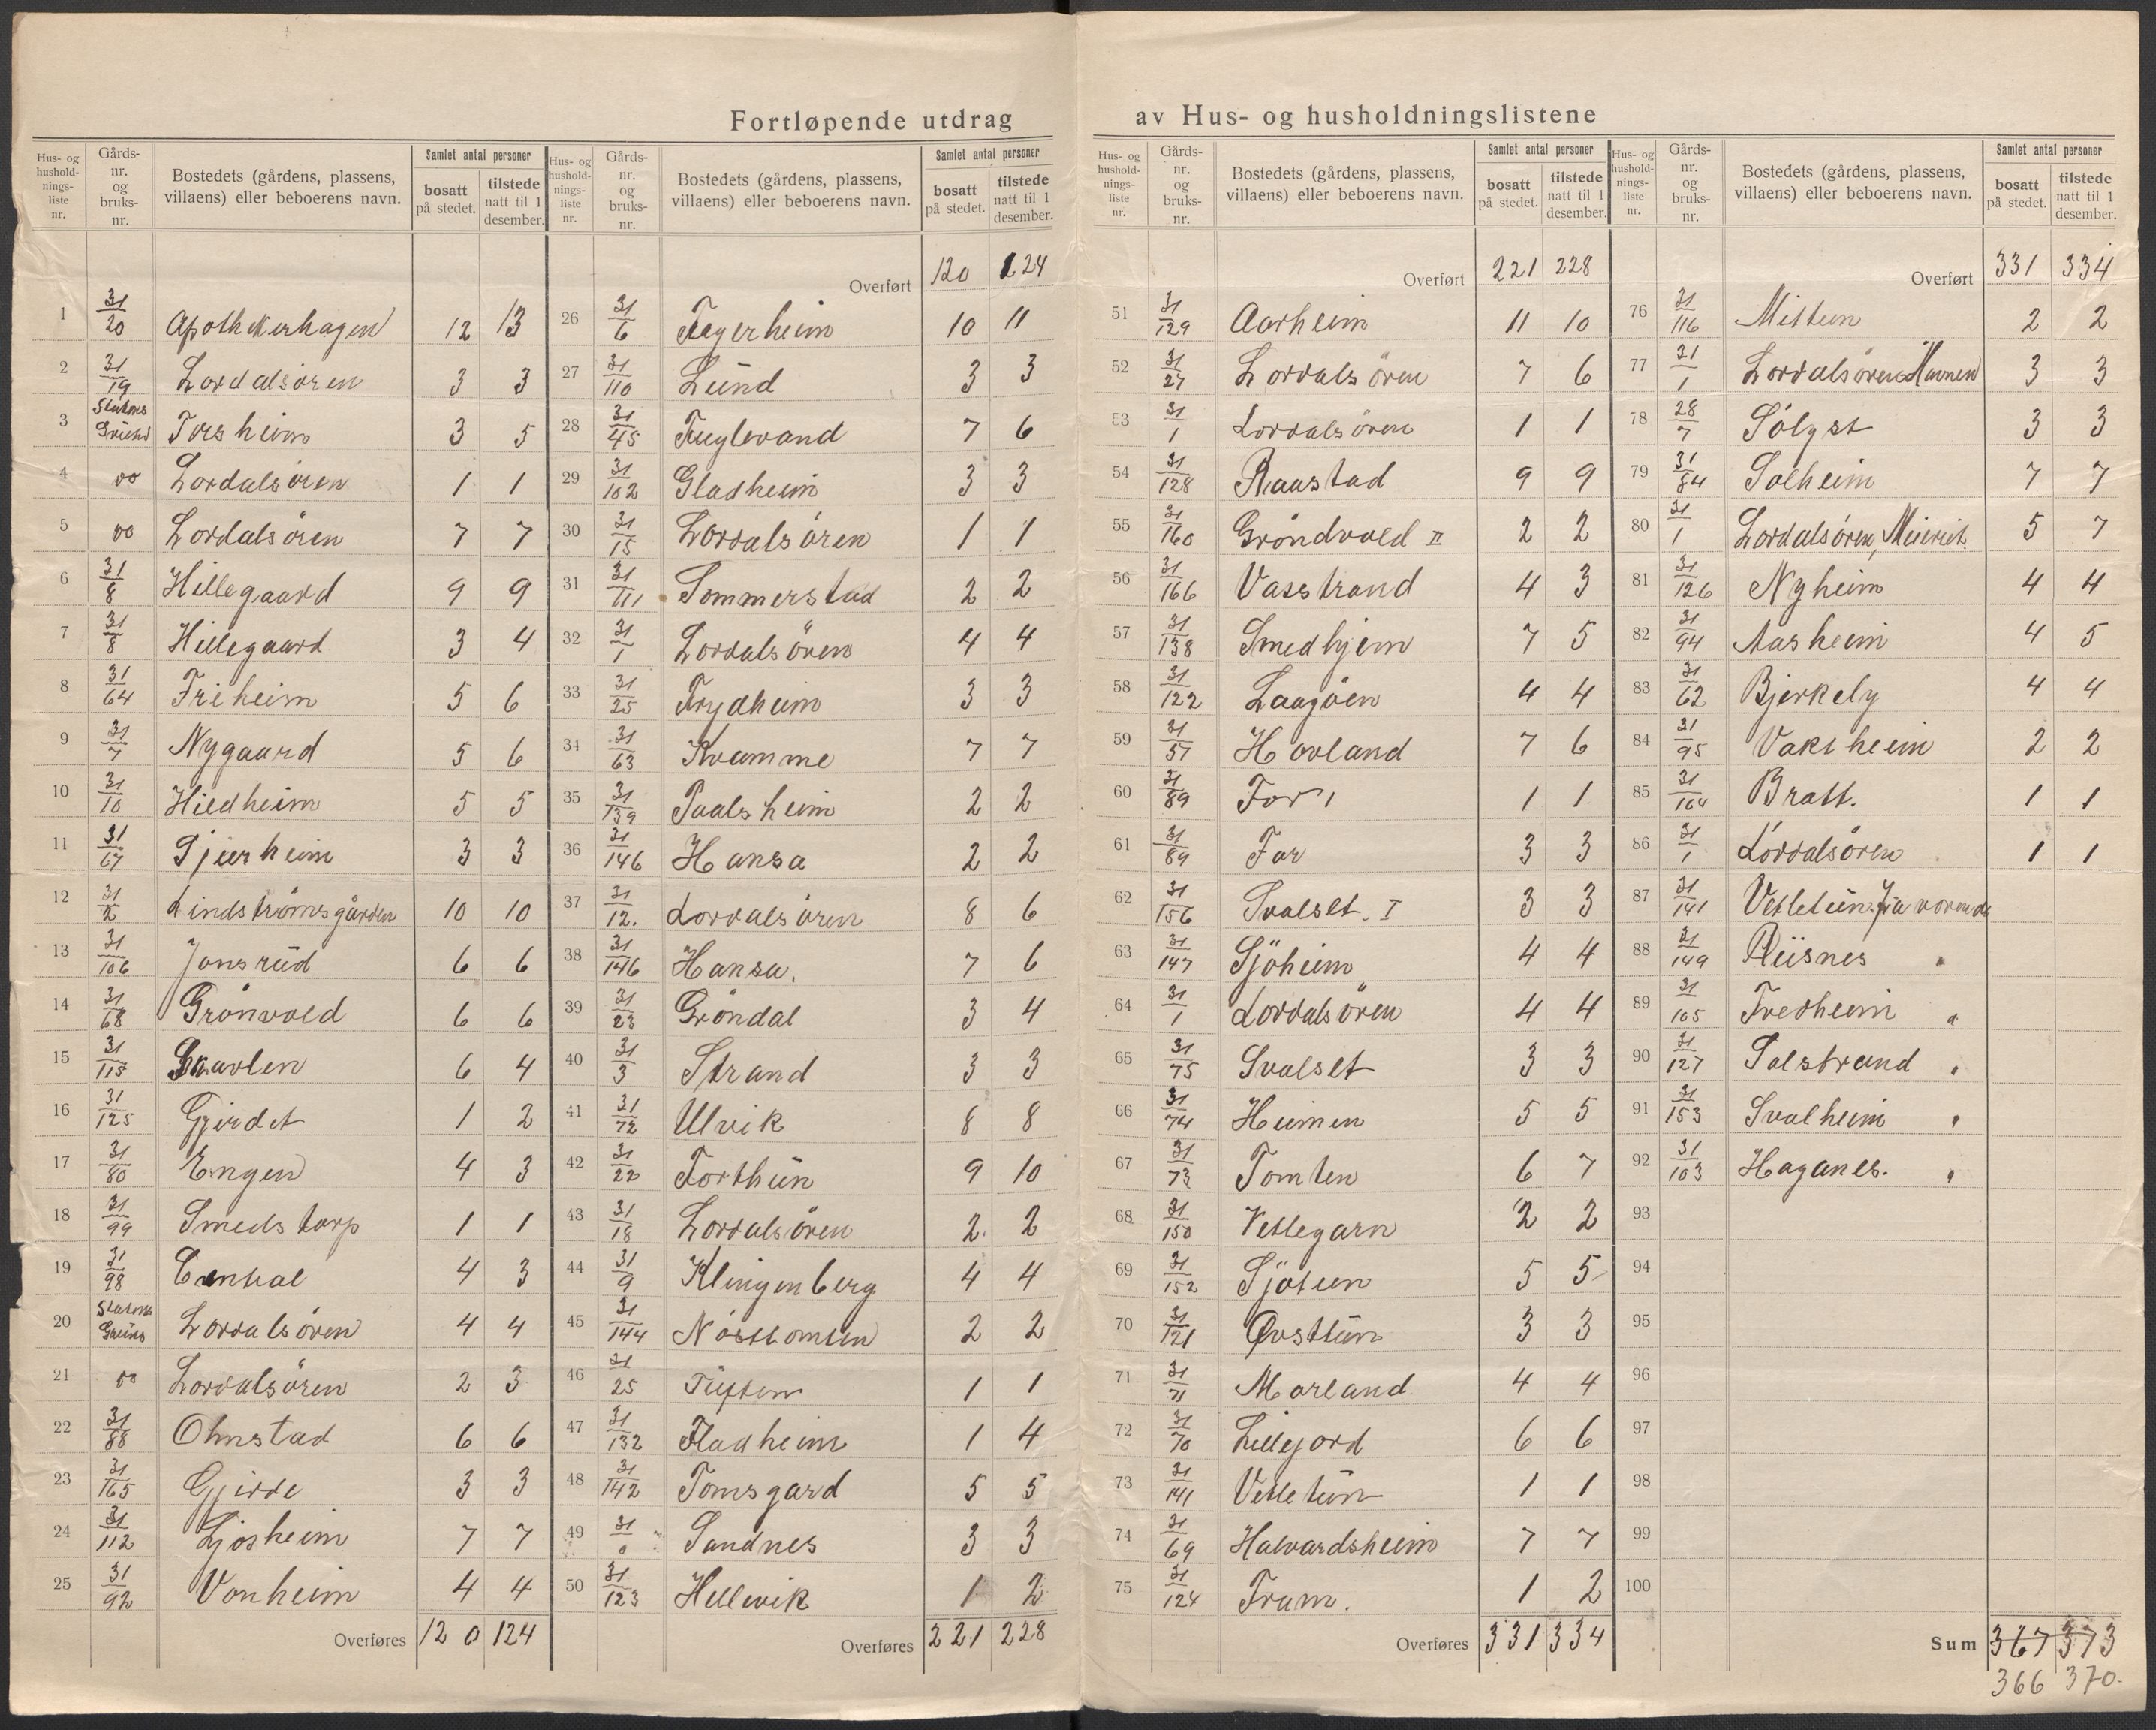 Fortløpende utdrag av Hus- og husholdningslistene
Hus- og hushold- nings- liste nr. | Gårds- nr. og bruks- nr. | Bostedets (gårdens, plassens, villaens) eller beboerens navn. | Samlet antal personer bosatt på stedet. | tilstede natt til 1 desember.
1 31/20 Apothekerhagen 12 13
2 31/19 Lærdalsören 3 3
3 Statens Grund Forsheim 3 5
4 do Lærdalsören 1 1
5 do Lærdalsören 7 7
6 31/8 Hillegaard 9 9
7 31/8 Hillegaard 3 4
8 31/64 Friheim 5 6
9 31/7 Nygaard 5 6
10 31/10 Hildheim 5 5
11 31/67 Tjerheim 3 3
12 31/2 Lindströmsgården 10 10
13 31/106 Jonsrud 6 6
14 31/68 Grönvold 6 6
15 31/115 6 4
16 31/125 Gjerdet 1 2
17 31/80 Engen 4 3
18 31/99 Smedstorp 1 1
19 31/98 Central 4 3
20 Statens Grund Lærdalsören 4 4
21 do Lærdalsören 2 3
22 31/88 Ohnstad 6 6
23 31/165 Gjerde 3 3
24 31/112 Ljosheim 7 7
25 31/92 Vonheim 4 4
Overføres 120 124
Hus- og hushold- nings- liste nr. | Gårds- nr. og bruks- nr. | Bostedets (gårdens, plassens, villaens) eller beboerens navn. | Samlet antal personer bosatt på stedet. | tilstede natt til 1 desember.
Overført 120 124
26 31/6 Fagerheim 10 11
27 31/110 Lund 3 3
28 31/45 Fuglevand 7 6
29 31/102 Gladheim 3 3
30 31/15 Lærdalsören 1 1
31 31/111 Sommerstad 2 2
32 31/1 Lærdalsören 4 4
33 31/25 Frydheim 3 3
34 31/63 Kvamme 7 7
35 31/139 Paalsheim 2 2
36 31/146 Hansa 2 2
37 31/12. Lærdalsören 8 6
38 31/146 Hansa. 7 6
39 31/23 Gröndal 3 4
40 31/3 Strand 3 3
41 31/72 Ulvik 8 8
42 31/22 Forthun 9 10
43 31/18 Lærdalsören 2 2
44 31/9 Klingenberg 4 4
45 31/144 Nöstetomten 2 2
46 31/25 Tuften 1 1
47 31/132 Fladheim 1 4
48 31/142 Tomsgard 5 5
49 31/0 Sandnes 3 3
50 31/123 Hellevik 1 2
Overføres 221 228
Hus- og hushold- nings- liste nr. | Gårds- nr. og bruks- nr. | Bostedets (gårdens, plassens, villaens) eller beboerens navn. | Samlet antal personer bosatt på stedet. | tilstede natt til 1 desember.
Overført 221 228
51 31/129 Aarheim 11 10
52 31/27 Lærdalsören 7 6
53 31/1 Lærdalsören 1 1
54 31/128 Raastad 9 9
55 31/160 Gröndvold II 2 2
56 31/166 Vasstrand 4 3
57 31/138 Smedhjem 7 5
58 31/122 Laagöen 4 4
59 31/57 Hovland 7 6
60 31/89 Far 1 1
61 31/89 Far 3 3
62 31/156 Svalset. I 3 3
63 31/147 Sjöheim 4 4
64 31/1 Lærdalsören 4 4
65 31/75 Svalset 3 3
66 31/74 Heimen 5 5
67 31/73 Tomten 6 7
68 31/150 Vetlegarn 2 2
69 31/152 Sjötun 5 5
70 31/121 Øvsttun 3 3
71 31/71 Morland 4 4
72 31/70 Lillejord 6 6
73 31/141 Vetletun 1 1
74 31/69 Halvardsheim 7 7
75 31/124 Fram. 1 2
Overføres 331 334
Hus- og hushold- nings- liste nr. | Gårds- nr. og bruks- nr. | Bostedets (gårdens, plassens, villaens) eller beboerens navn. | Samlet antal personer bosatt på stedet. | tilstede natt til 1 desember.
Overført 331 334
76 31/116 Mittun 2 2
77 31/1 Lærdalsören Havnen 3 3
78 28/7 Sølyst 3 3
79 31/84 Solheim 7 7
80 31/1 Lærdalsören, Meieriet. 5 7
81 31/126 Nyheim 4 4
82 31/94 Aasheim 4 5
83 31/62 Bjerkely 4 4
84 31/95 Vaksheim 2 2
85 31/164 Bratt. 1 1
86 31/1 Lærdalsören 1 1
87 31/141 Vetletun. fraværende
88 31/149 Riisnes "
89 31/105 Fredheim "
90 31/127 Solstrand "
91 31/153 Svalheim "
92 31/103 Haganes. "
93
94
95
96
97
98
99
100
Sum 367 373
366 370.